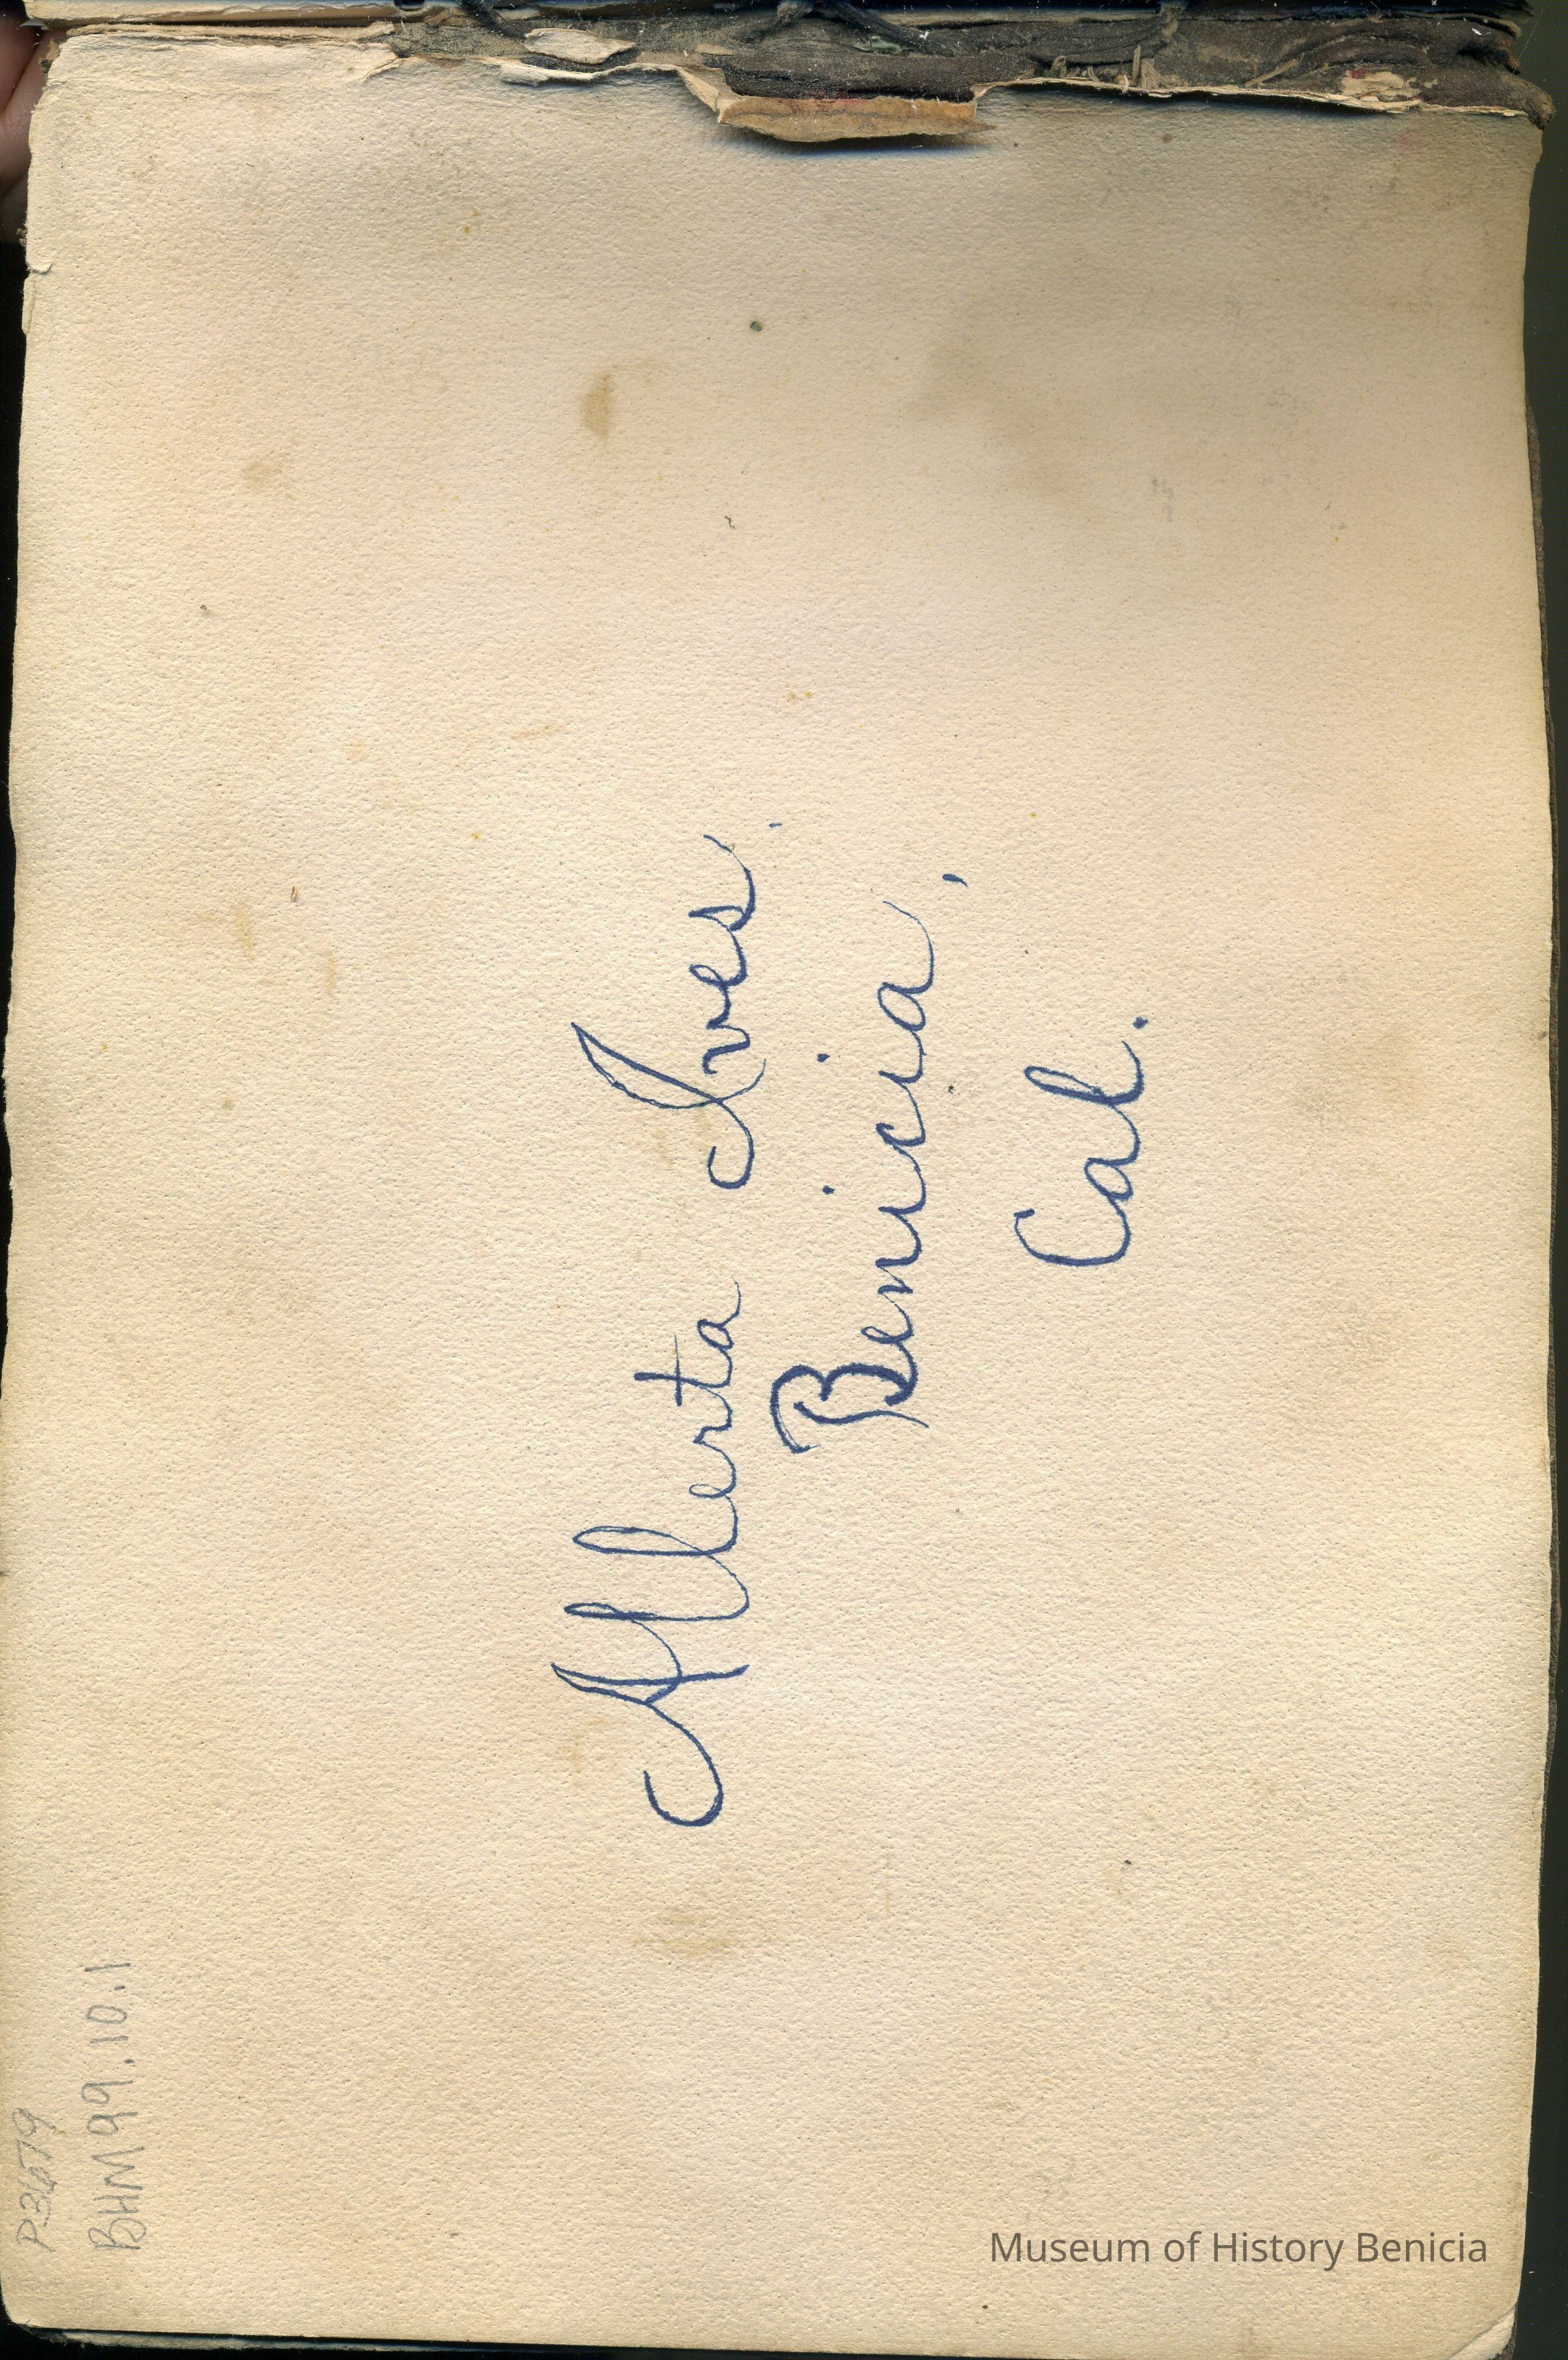 P3679
BHM 99.10.1
Alberta Ives.
Benicia,
Cal.
Museum of History Benicia